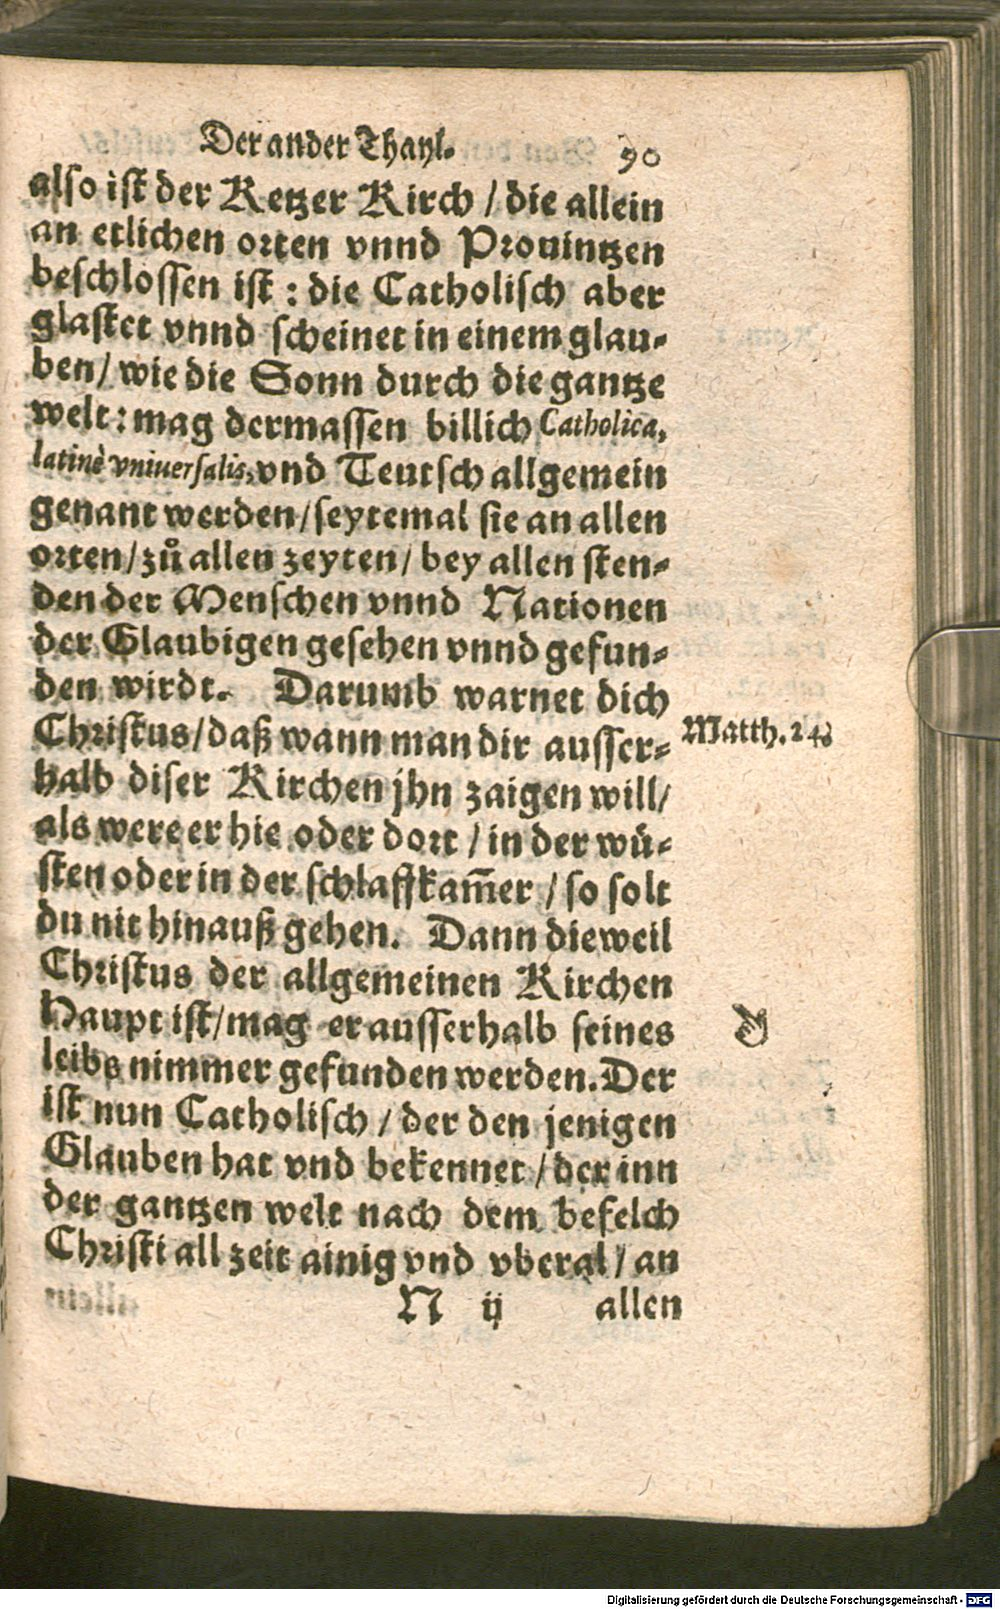 Der ander Thayl. 90
also ist der Ketzer Kirch / die allein
an etlichen orten vnnd Prouintzen
beschlossen ist : die Catholisch aber
glastet vnnd scheinet in einem glau⸗
ben / wie die Sonn durch die gantze
welt : mag dermassen billich Catholica,
latinè vniuersalis, vnd Teutsch allgemein
genant werden / seytemal sie an allen
orten / zů allen zeyten / bey allen sten⸗
den der Menschen vnnd Nationen
der Glaubigen gesehen vnnd gefun⸗
den wirdt. Darumb warnet dich
Christus / daß wann man dir ausser⸗
Matth. 24.
halb diser Kirchen jhn zaigen will /
als were er hie oder dort / in der wů⸗
sten oder in der schlaffkam̃er / so solt
du nit hinauß gehen. Dann dieweil
Christus der allgemeinen Kirchen
Haupt ist / mag er ausserhalb seines
leibs nimmer gefunden werden. Der
ist nun Catholisch / der den jenigen
Glauben hat vnd bekennet / der inn
der gantzen welt nach dem befelch
Christi all zeit ainig vnd vberal / an
N ij allen
Digitalisierung gefördert durch die Deutsche Forschungsgemeinschaft - DFG